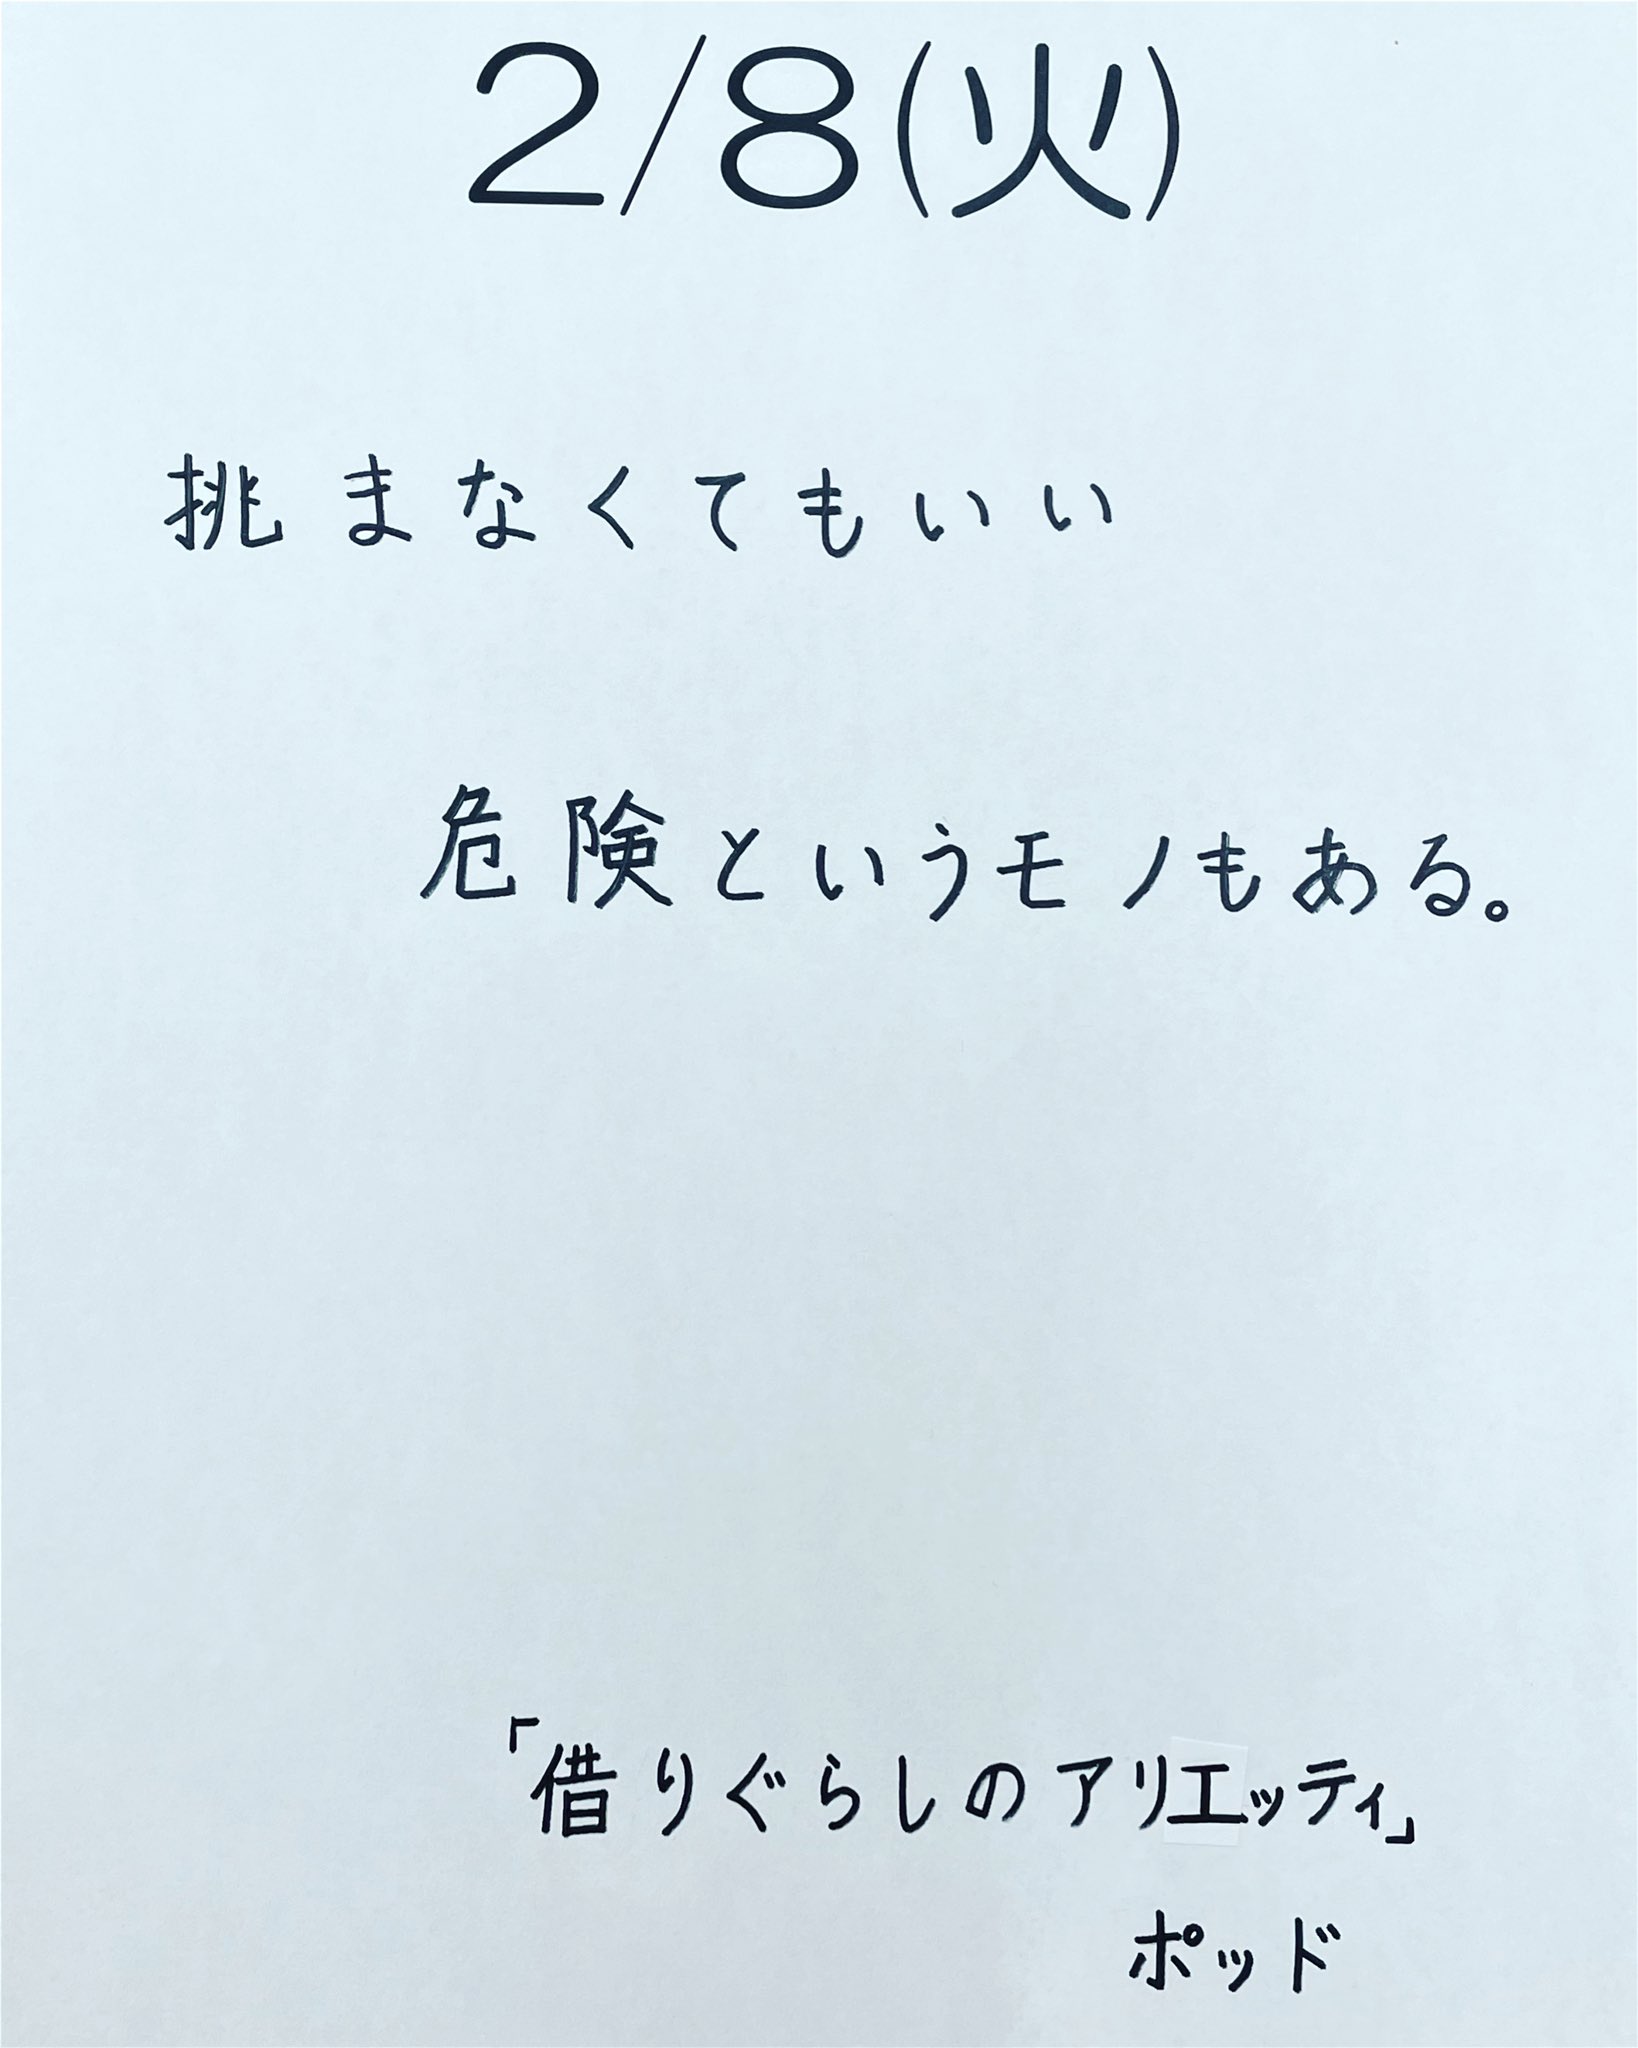 2/8(火)
挑まなくてもいい
危険というモノもある。
「借りぐらしのアリエッティ」
ポッド